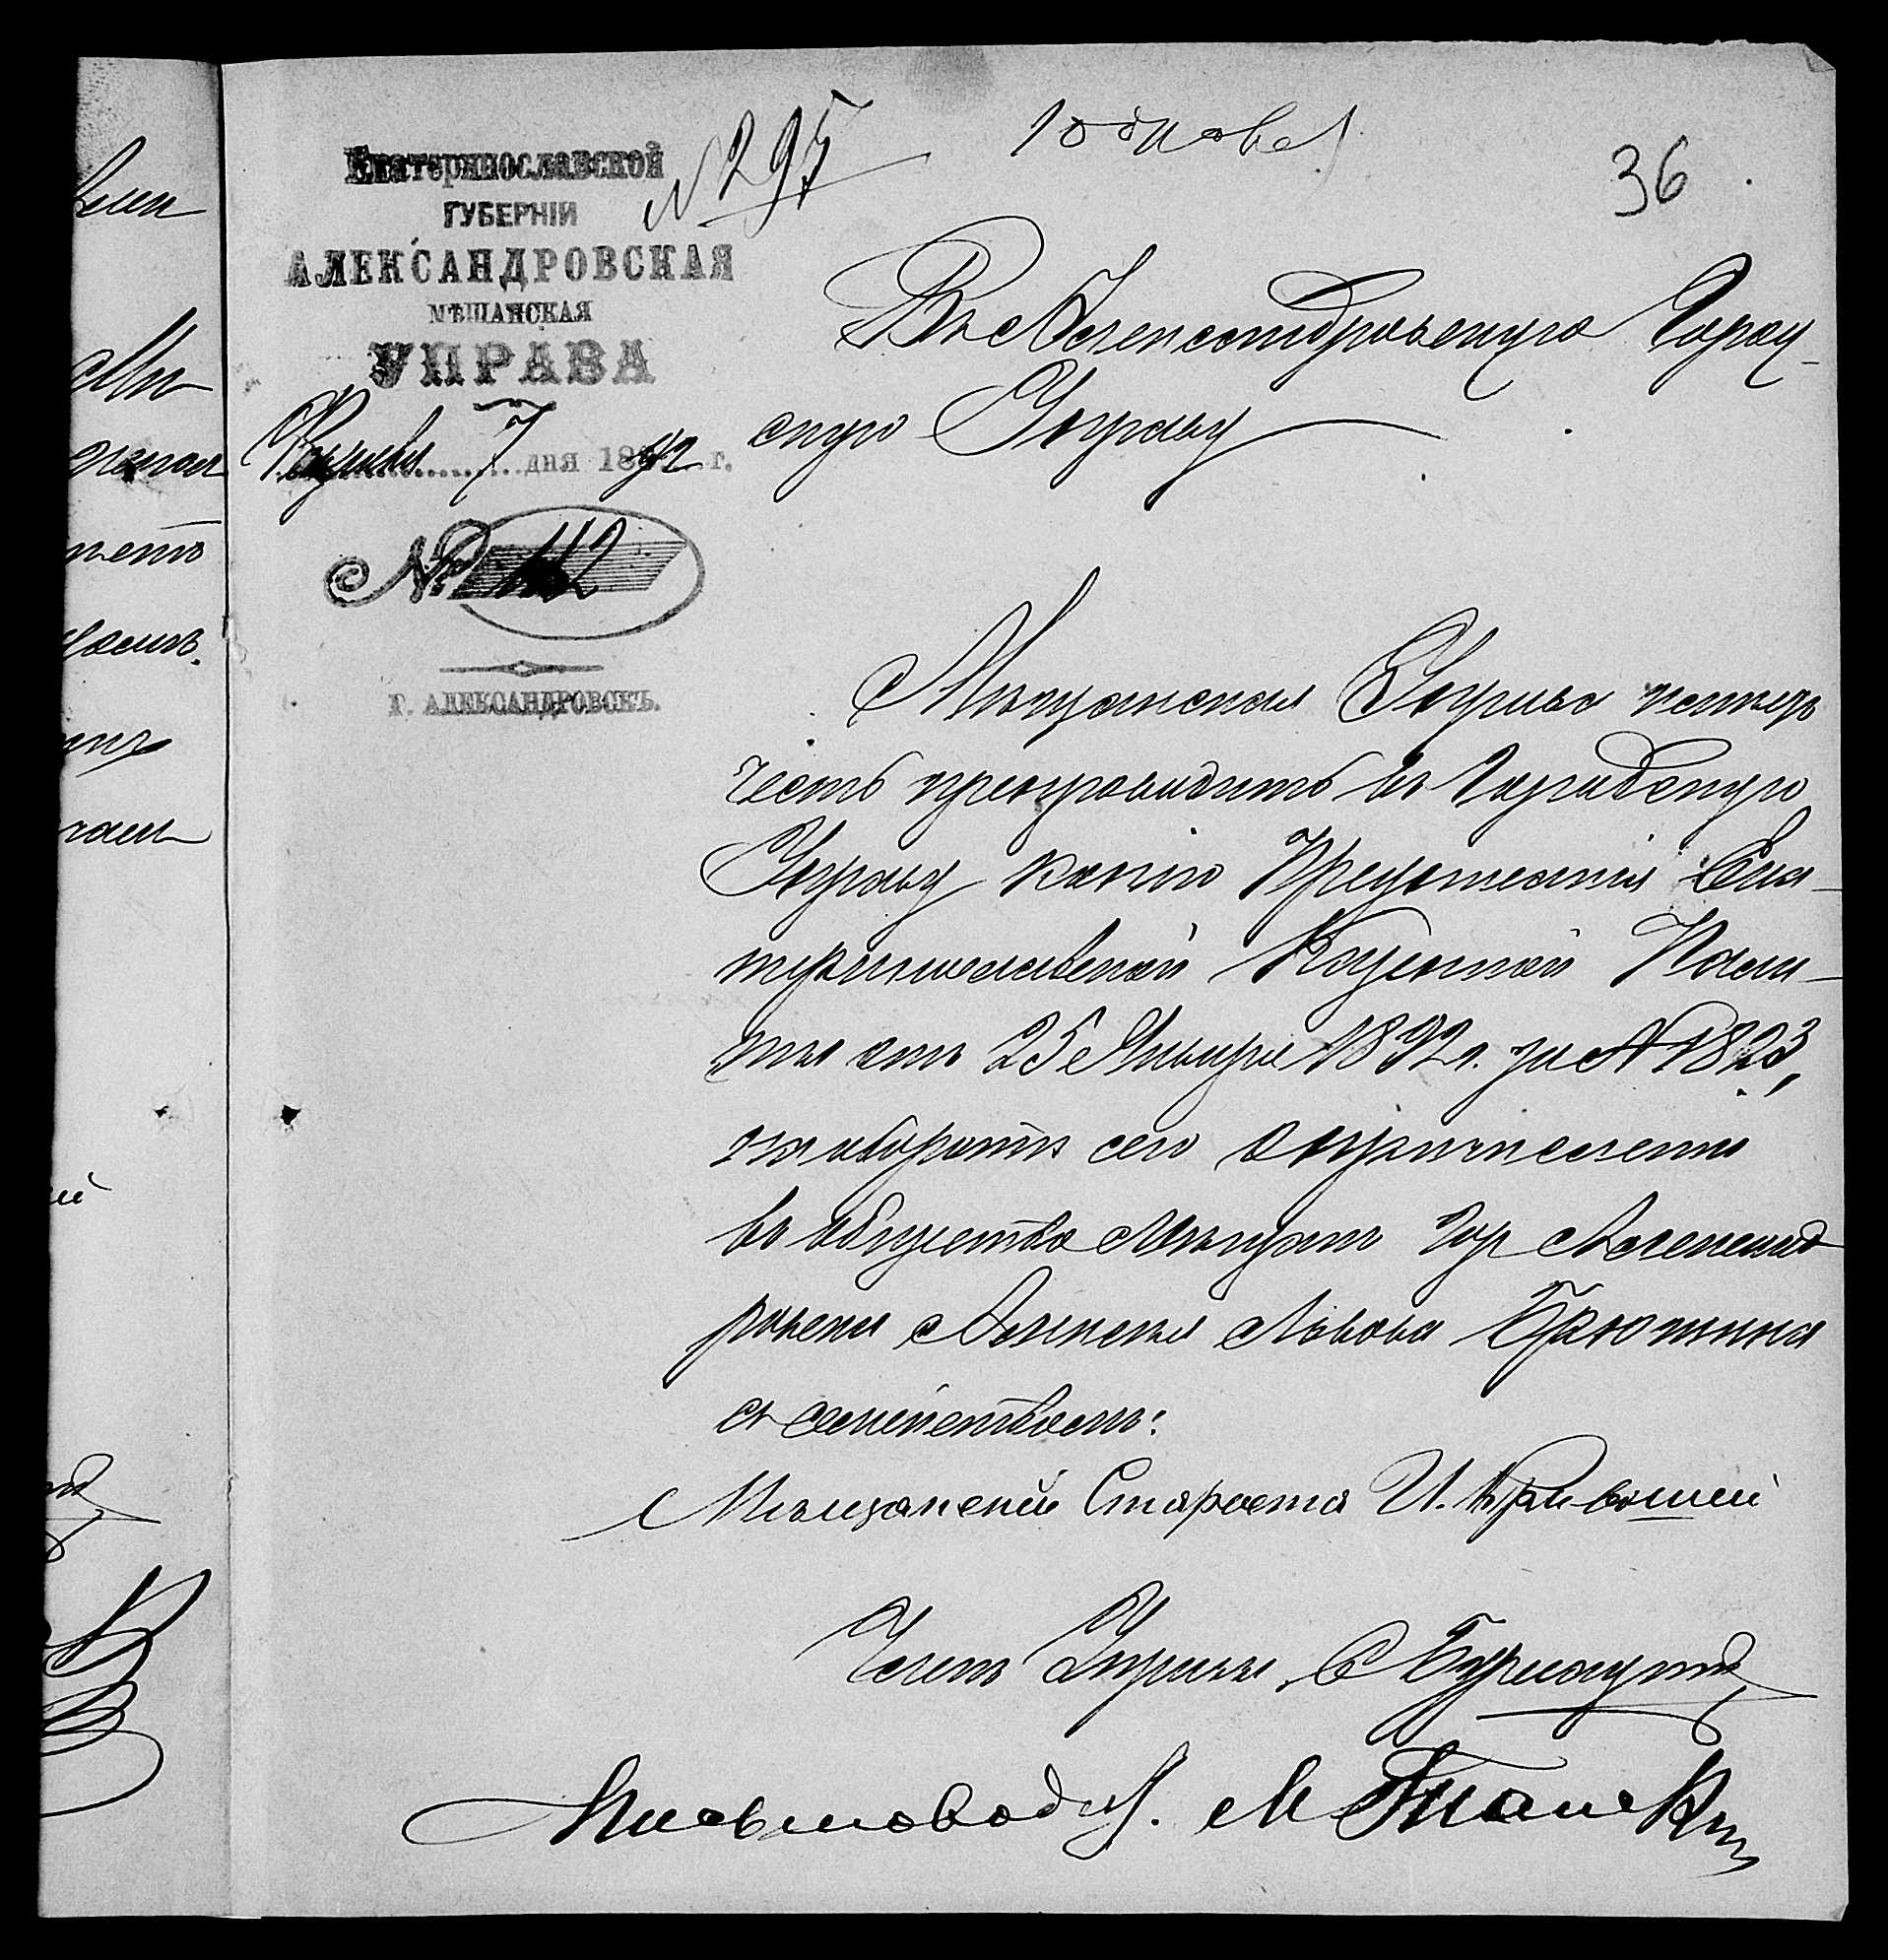 Екатеринославской
ГУБЕРНІИ
АЛЕКСАНДРОВСКАЯ
МѢЩАНСКАЯ
УПРАВА
Февраля 7 дня 1892 г.
№ 112
Г. АЛЕКСАНДРОВСКЪ.
№ 295
36
Въ Александровскую Город-
скую Управу
Мѣщанская Управа имѣетъ
честь препроводить въ Городскую
Управу копію Предписанія Ека-
теринославской Казенной Пала-
ты отъ 25 Января 1892 г. за № 1823,
на оборотѣ сего о причисленіи
въ общество мѣщанъ гор Александ
ровска Алексея Львова Брюшина
съ семействомъ:
Мѣщанскій Староста И.
Членъ Управы С
Письмовод. М